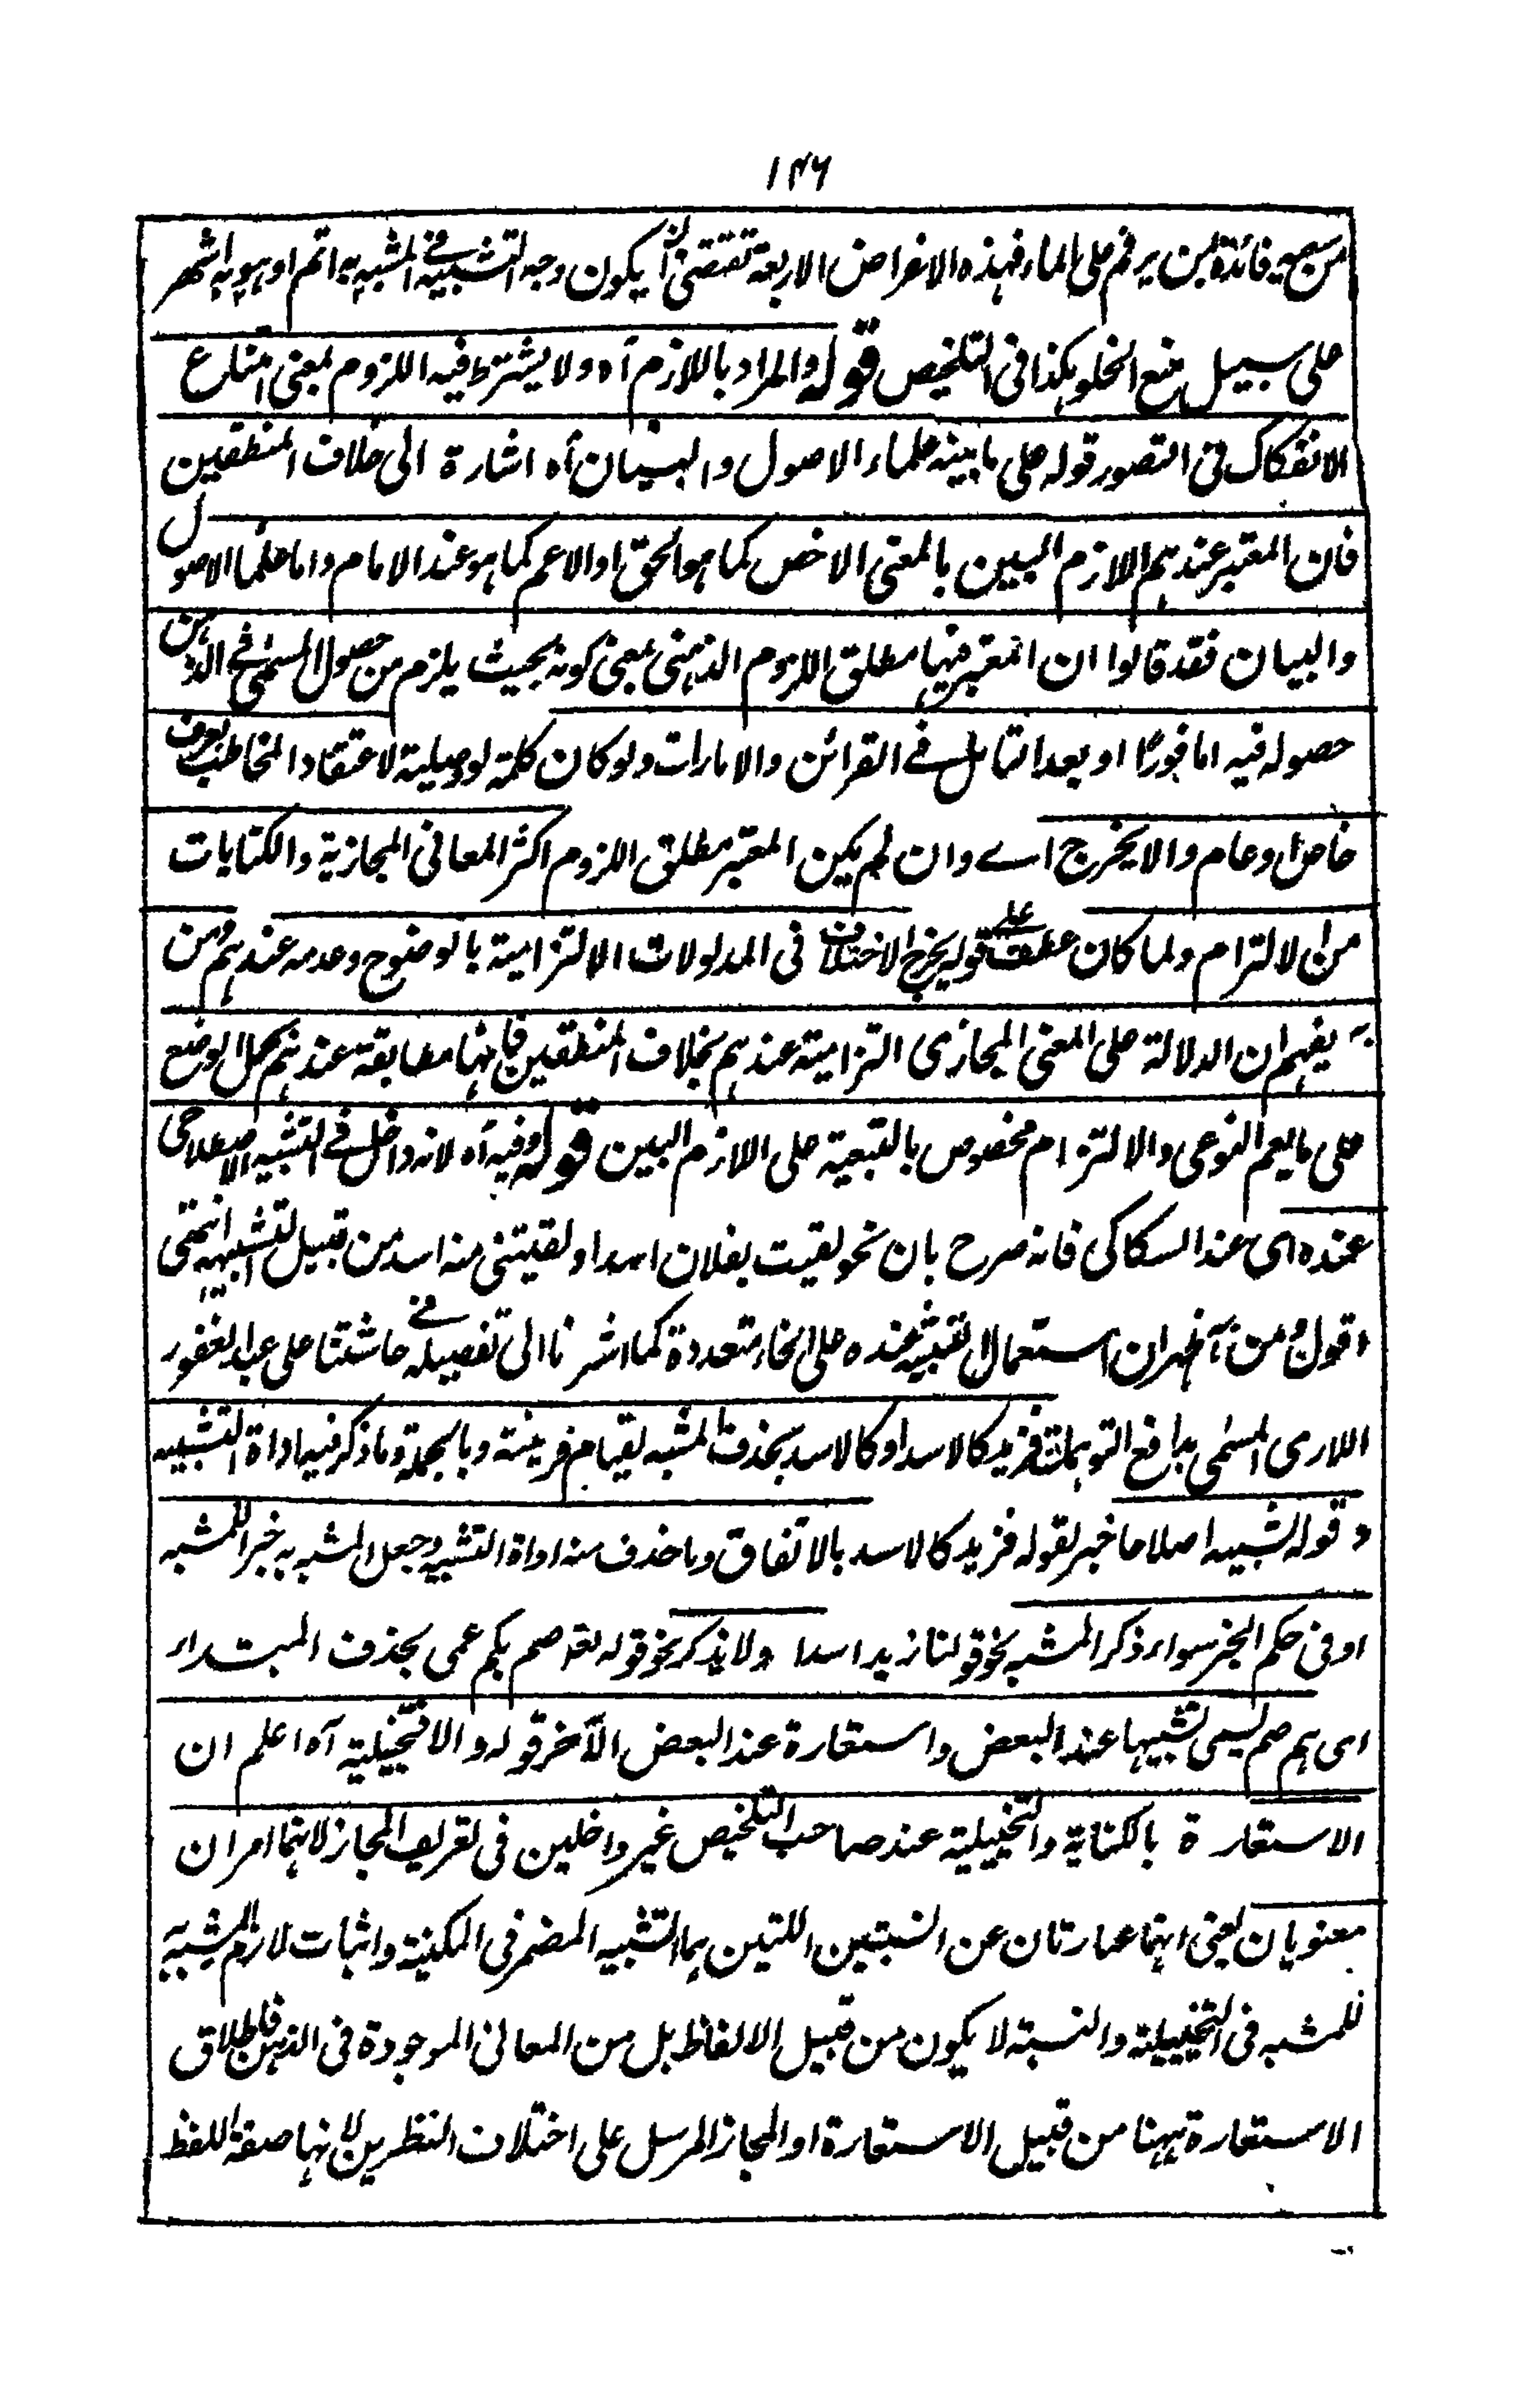 ١٣٦
من سعيه فائدة لمن يرقم على الماء فهذه الاغراض الاربعة تقتضى ان يكون وجه التشبيه فى المشبه به اتم او هو به اشهر
على سبيل منع الخلو هكذا فى التلخيص قوله والمراد باللازم آه ولا يشترط فيه اللزوم بمعنى امتناع
الانفكاك فى التصور قوله على ما بينه علماء الاصول والبيان آه اشارة الى خلاف المنطقيين
فان المعتبر عندهم اللازم البين بالمعنى الاخص كما هو الحق او الاعم كما هو عند الامام واما علماء الاصول
والبيان فقد قالوا ان المعتبر فيها مطلق اللزوم الذهنى بمعنى كونه بحيث يلزم من حصول المسمى فى الذهن
حصوله فيه اما فورًا او بعد التامل فے القرائن والامارات ولو كان كلمة لو وصلية لاعتقاد المخاطب بعرف
خاص او عام والا يخرج اے وان لم يكن المعتبر مطلق اللزوم اكثر المعانى المجازية والكنايات
من الالتزام ولما كان عطف على قوله يخرج الاختلاف فى المدلولات الالتزامية بالوضوح وعدمه عندهم ومن
به يفهم ان الدلالة على المعنى المجازى التزامية عندهم بخلاف المنطقيين فانها مطابقة عندهم لحمل الوضع
على ما يعم النوعى والالتزام مخصوص بالتبعية على اللازم البين قوله وفيه آه لانه داخل فے التشبيه الاصطلاحى
عنده اى عند السكاكى فانه صرح بان نحو لقيت بفلان اسدا ولقيتنى منه اسد من قبيل التشبيه انتهى
اقول ومن ههنا ظهر ان استعمال التشبيه عنده على انحاء متعددة كما اشرنا الى تفصيله فے حاشتنا على عبد الغفور
اللارى المسمى بدافع التوهمات فزيد كالاسد او كالاسد بحذف المشبه لقيام قرينة وبالجملة وما ذكر فيه اداة التشبيه
وقوله تشبيه اصلاحا خبر لقوله فزيد كالاسد بالاتفاق وما حذف منه اداة التشبيه وجعل المشبه به خبر اللمشبه
او فى حكم الخبر سواء ذكر المشبه نحو قولنا زيد اسدا ولا يذكر نحو قوله تعه صم بكم عمى بحذف المبتداء
اى هم صم يسمى تشبيها عند البعض واستعارة عند البعض الآخر قوله والا فتخييلية آه اعلم ان
الاستعارة بالكناية والتخييلية عند صاحب التلخيص غير داخلين فى تعريف المجاز لانهما امران
معنويان يعنى انهما عبارتان عن النسبتين اللتين هما التشبيه المضمر فى المكنية واثبات لازم المشبه به
للمشبه فى التخييلية والنسبة لا يكون من قبيل الالفاظ بل من المعانى الموجودة فى الذهن فاطلاق
الاستعارة ههنا من قبيل الاستعارة او المجاز المرسل على اختلاف النظرين لانها صفة اللفظ